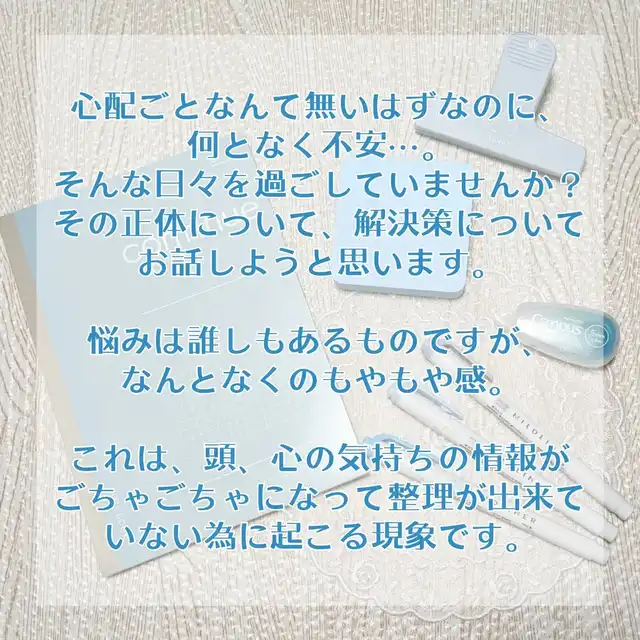 心配ごとなんて無いはずなのに、
何となく不安…。
そんな日々を過ごしていませんか？
その正体について、解決策について
お話しようと思います。
悩みは誰しもあるものですが、
なんとなくのもやもや感。
これは、頭、心の気持ちの情報が
ごちゃごちゃになって整理が出来て
いない為に起こる現象です。